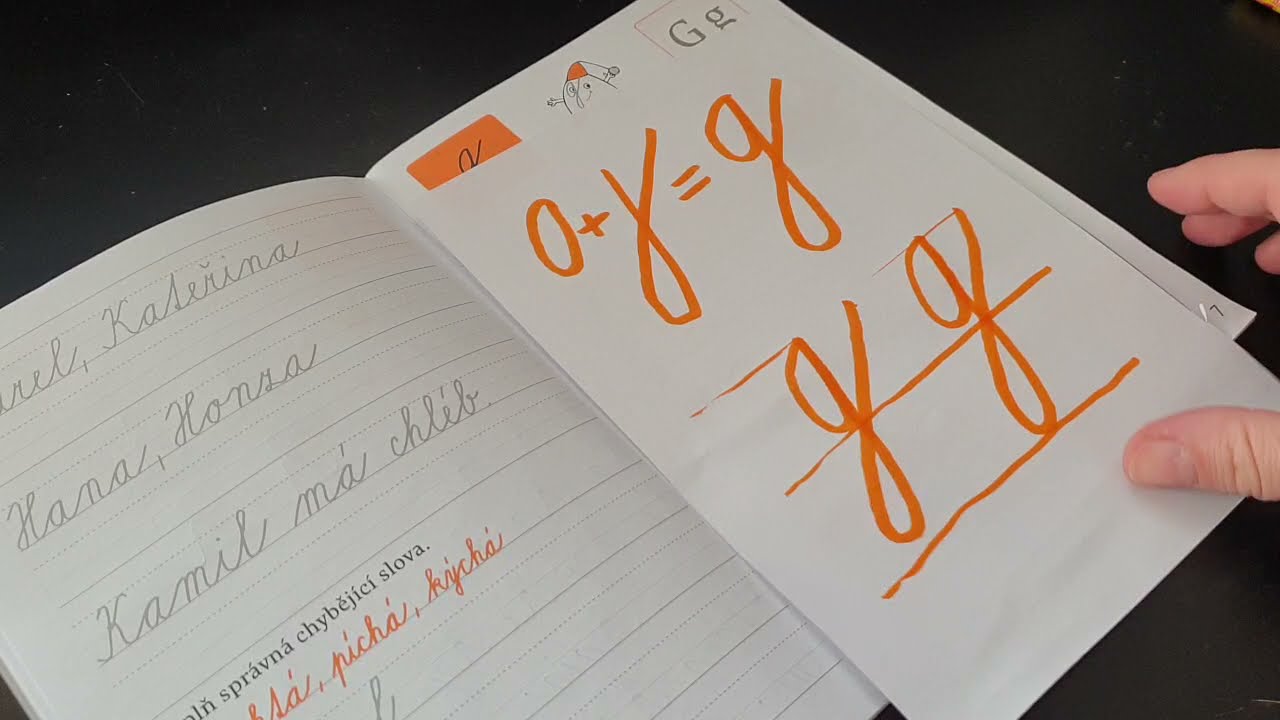 Kateřina
Hana, Honza
Kamil má chléb.
správná chybějící slova.
píchá, kýchá
G g
a
o + y = g
g g